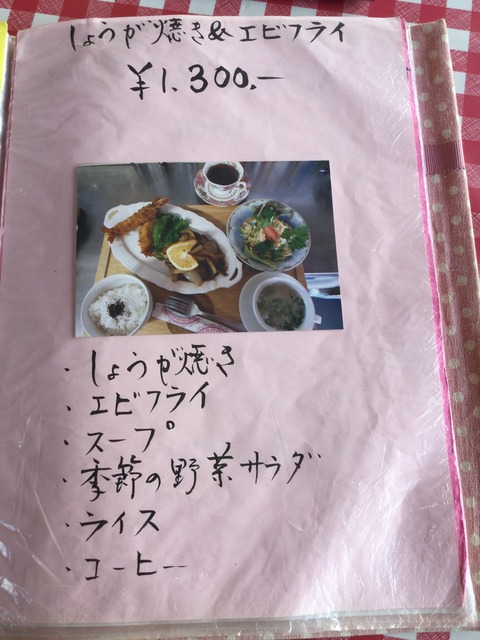 しょうが焼き&エビフライ
¥1,300.—
・しょうが焼き
・エビフライ
・スープ
・季節の野菜サラダ
・ライス
・コーヒー